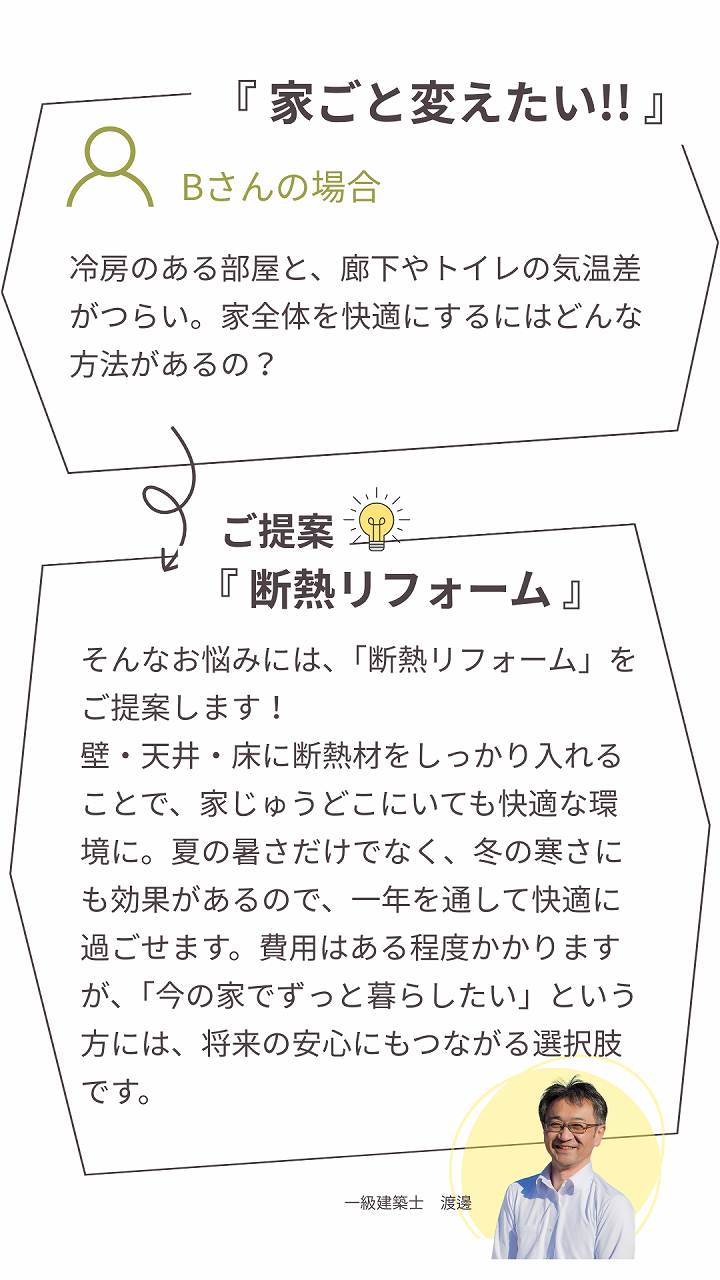 『 家ごと変えたい!! 』
Bさんの場合
冷房のある部屋と、廊下やトイレの気温差
がつらい。家全体を快適にするにはどんな
方法があるの？
ご提案
『 断熱リフォーム 』
そんなお悩みには、「断熱リフォーム」を
ご提案します！
壁・天井・床に断熱材をしっかり入れる
ことで、家じゅうどこにいても快適な環
境に。夏の暑さだけでなく、冬の寒さに
も効果があるので、一年を通して快適に
過ごせます。費用はある程度かかります
が、「今の家でずっと暮らしたい」という
方には、将来の安心にもつながる選択肢
です。
一級建築士　渡邊